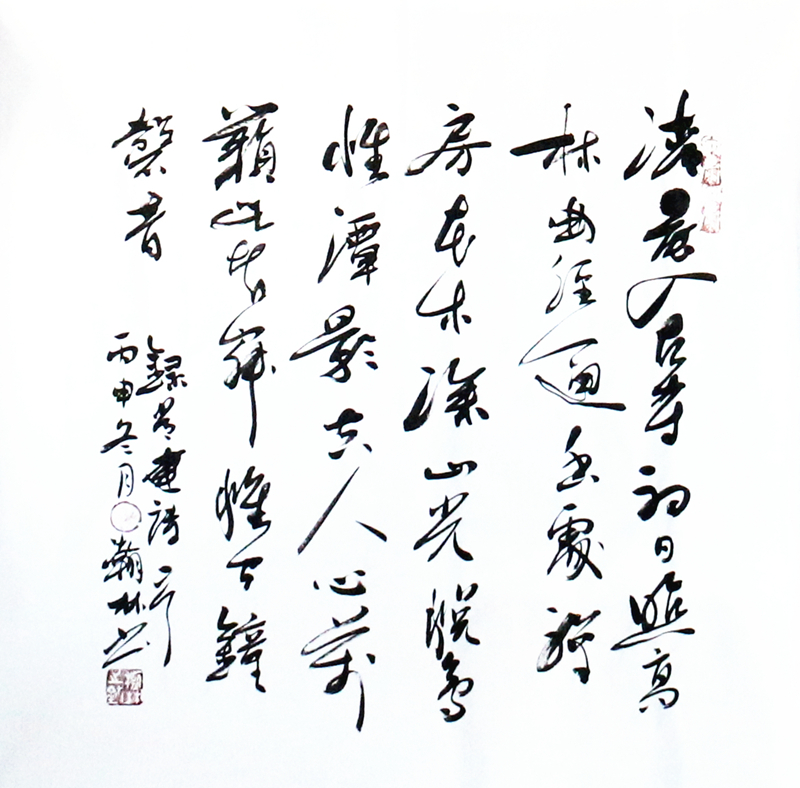 清晨入古寺初日照高
林曲徑通幽處禪
房花木深山光悅鳥
性潭影空人心萬
籟此皆寂惟聞鐘
磬音
錄常建詩一首
丙申冬月瀚林书